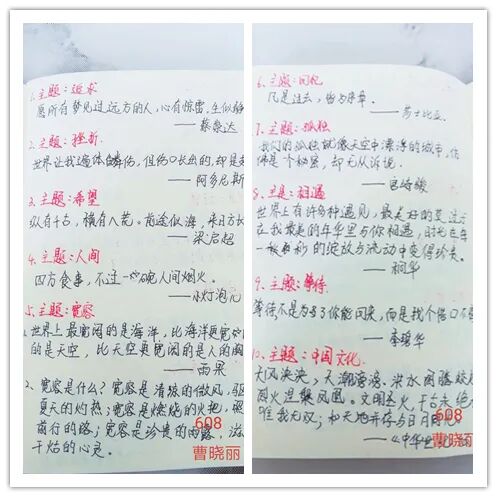 1、主题：追求
愿所有梦见过远方的人，心有惊雷，生似
——蔡崇达
2、主题：挫折
世界让我遍体鳞伤，但伤口长出的，却是
——阿多尼斯
3、主题：希望
纵有千古，横有八荒。前途似海，来日方长
——梁启超
4、主题：人间
四方食事，不过一碗人间烟火。
5、主题：宽容
1、世界上最宽阔的是海洋，比海洋更宽
的是天空，比天空更宽阔的是人的胸
——雨果
2、宽容是什么？宽容是清凉的微风，驱
夏天的灼热；宽容是燃烧的火把，
前行的路；宽容是珍贵的雨露，滋
干焰的心灵。
608
曹晓丽
6、主题：回忆
凡是过去，皆为序章。
——莎士比亚
7、主题：孤独
我们的孤独就像天空中漂浮的城市，
佛是个秘密，却无从诉说。
——宫崎骏
8、主题：相遇
世界上有许多种遇见，最美好的莫过
在我最美的年华里与你相遇，时光在每
一秒的绽放与流动中变得珍贵。
——桐华
9、主题：等待
等待不是为了你能回来，而是找个借口不
——李碧华
10、主题：中国文化
608
曹晓丽